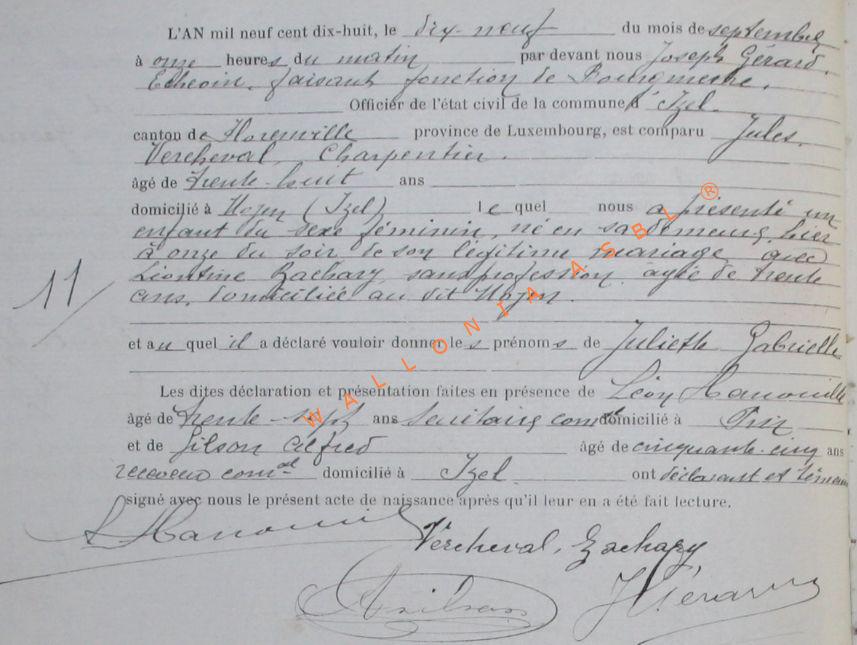 L'AN mil neuf cent dix-huit, le dix-neuf du mois de septembre
à onze heures du matin par devant nous Joseph Gérard,
Echevin, faisant fonction de Bourgmestre,
Officier de l'état civil de la commune d'Izel.
canton de Florenville province de Luxembourg, est comparu Jules
Vercheval, Charpentier.
âgé de trente-huit ans
domicilié à (Izel) le quel nous a présenté un
enfant du sexe féminin, né en sa demeure, hier
à onze du soir, de son légitime mariage avec
Léontine Zachary, sans profession, âgée de trente
ans, domiciliée au dit
11
et au quel il a déclaré vouloir donner les prénoms de Juliette Gabrielle
Les dites déclaration et présentation faites en présence de Léon Hanouille
âgé de trente-sept ans Secrétaire comal domicilié à Prin
et de Gilson Alfred âgé de cinquante-cinq ans
receveur comal domicilié à Izel ont déclarant et témoins
signé avec nous le présent acte de naissance après qu'il leur en a été fait lecture.
Vercheval, Zachary
J Gérard
WALLONIA ASBL ®